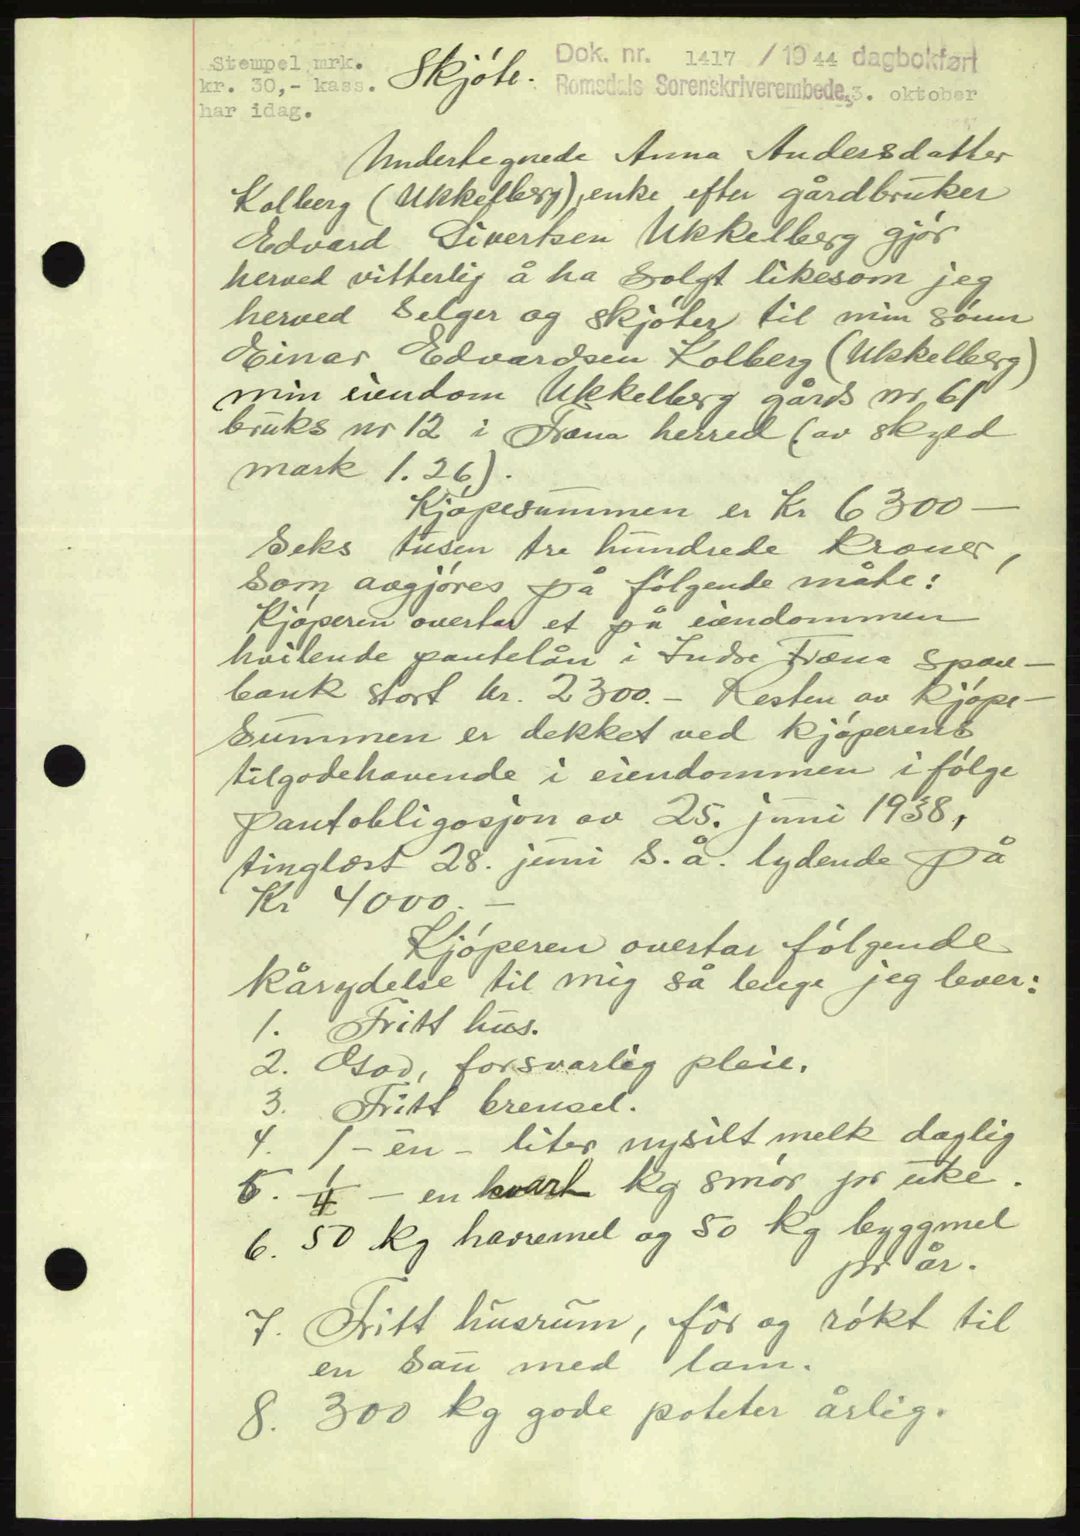 Stempel mrk.
kr. 30,- kass.
har idag.
Skjøte.
Dok. nr. 1417 / 1944 dagbokført
Romsdals Sorenskriverembede, 3. oktober
Undertegnede Anna Andersdatter
Kolberg (Ukkelberg), enke efter gårdbruker
Edvard Sivertsen Ukkelberg gjør
herved vitterlig å ha solgt likesom jeg
herved selger og skjøter til min sønn
Einar Edvardsen Kolberg (Ukkelberg)
min eiendom Ukkelberg gårds nr 61
bruks nr 12 i Fræna herred (av skyld
mark 1.26).
Kjøpesummen er Kr 6300 —
Seks tusen tre hundrede kroner,
som avgjøres på følgende måte:
Kjøperen overtar et på eiendommen
hvilende pantelån i Indre Fræna spare-
bank stort kr. 2300.- Resten av kjøpe-
summen er dekket ved kjøperens
tilgodehavende i eiendommen ifølge
pantobligasjon av 25. juni 1938,
tinglæst 28. juni s.å. lydende på
Kr 4000.-
Kjøperen overtar følgende
kårydelse til mig så lenge jeg lever:
1. Fritt hus.
2. God, forsvarlig pleie.
3. Fritt brensel.
4. 1 - en - liter nysilt melk daglig
5. 1/4 - en kvart kg smør pr uke.
6. 50 kg havremel og 50 kg byggmel
pr år.
7. Fritt husrum, fôr og røkt til
en sau med lam.
8. 300 kg gode poteter årlig.